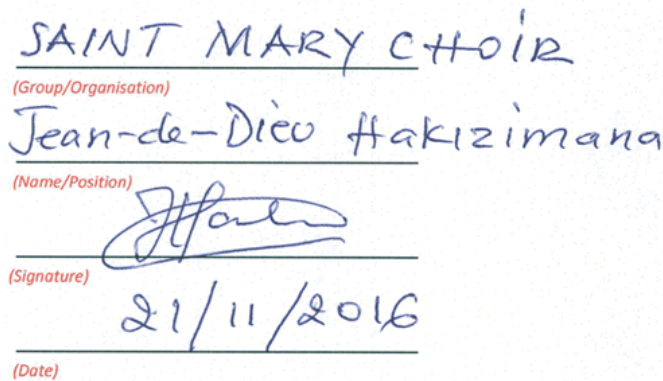 SAINT MARY CHOIR
(Group/Organisation)
Jean-de-Dieu Hakizimana
(Name/Position)
(Signature)
21/11/2016
(Date)